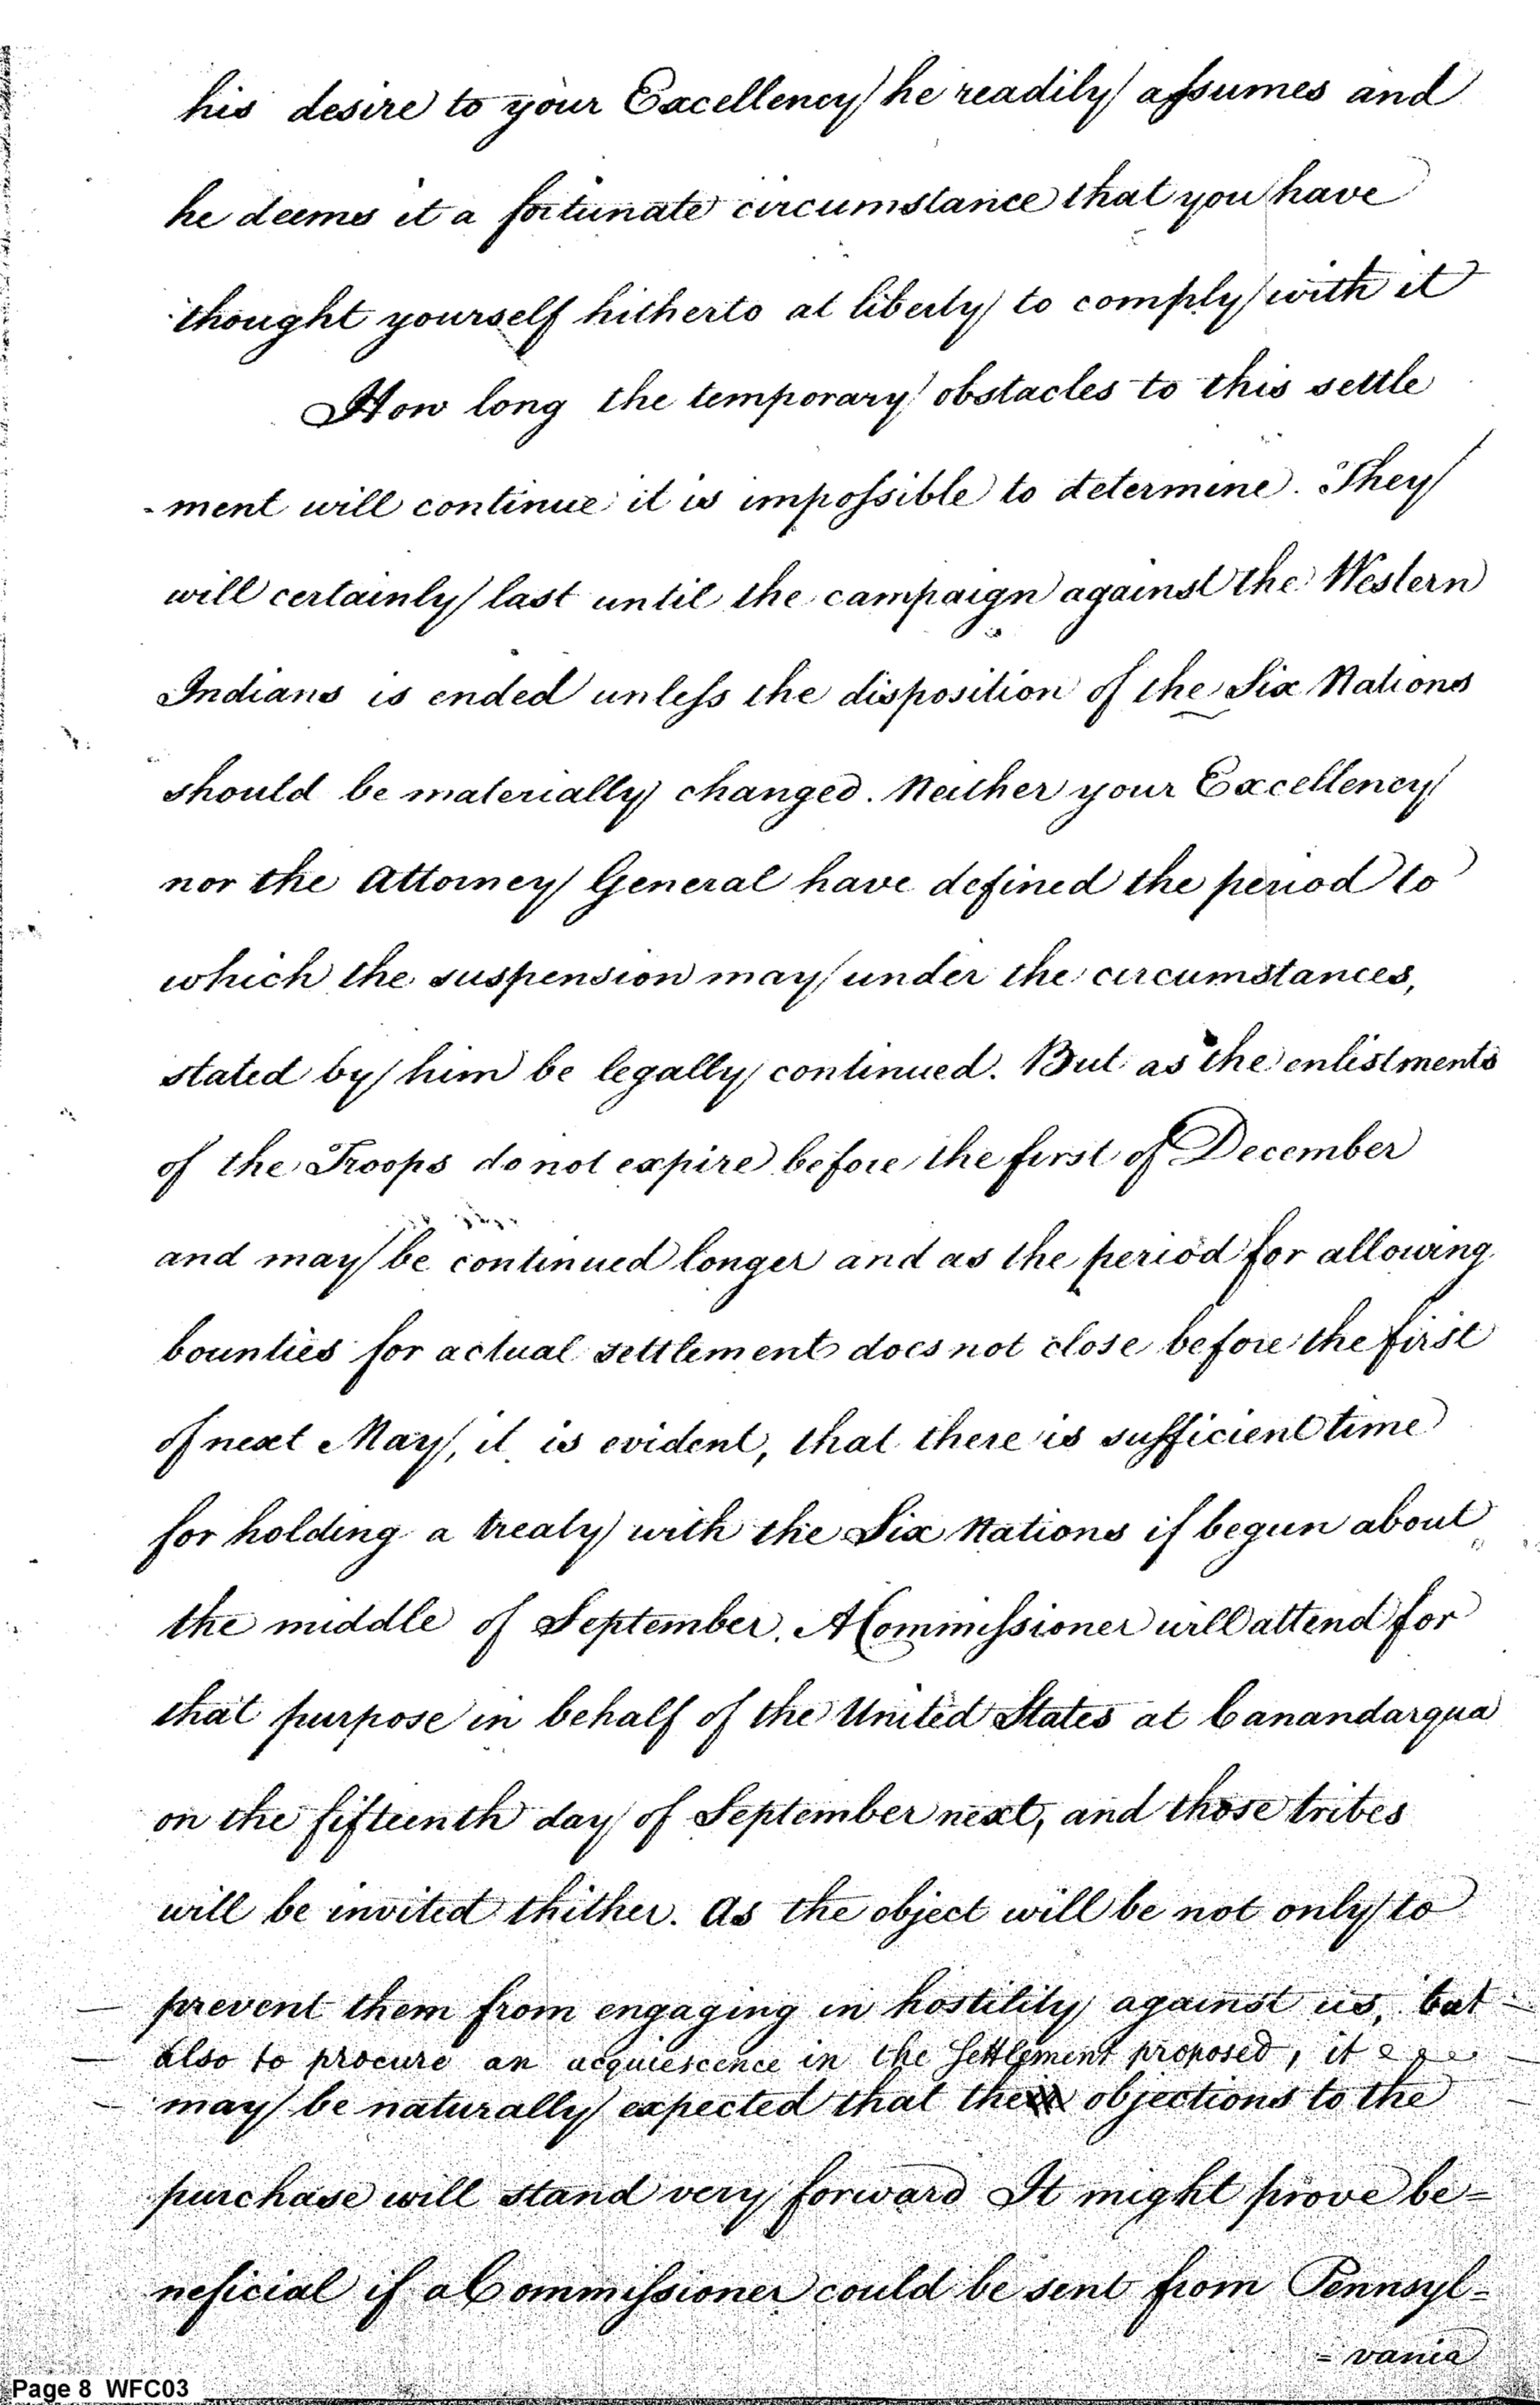 his desire to your Excellency he readily assumes and
he deems it a fortunate circumstance that you have
thought yourself hitherto at liberty to comply with it
How long the temporary obstacles to this settle
-ment will continue it is impossible to determine. They
will certainly last until the campaign against the Western
Indians is ended unless the disposition of the Six Nations
should be materially changed. Neither your Excellency
nor the Attorney General have defined the period to
which the suspension may under the circumstances,
stated by him be legally continued. But as the enlistments
of the Troops do not expire before the first of December
and may be continued longer and as the period for allowing
bounties for actual settlement does not close before the first
of next May, it is evident, that there is sufficient time
for holding a treaty with the Six Nations if begun about
the middle of September. A Commissioner will attend for
that purpose in behalf of the United States at Canandarqua
on the fifteenth day of September next, and those tribes
will be invited thither. As the object will be not only to
prevent them from engaging in hostility against us, but
also to procure an acquiescence in the Settlement proposed, it
may be naturally expected that the objections to the
purchase will stand very forward It might prove be=
neficial if a Commissioner could be sent from Pennsyl=
=vania
Page 8 WFC03